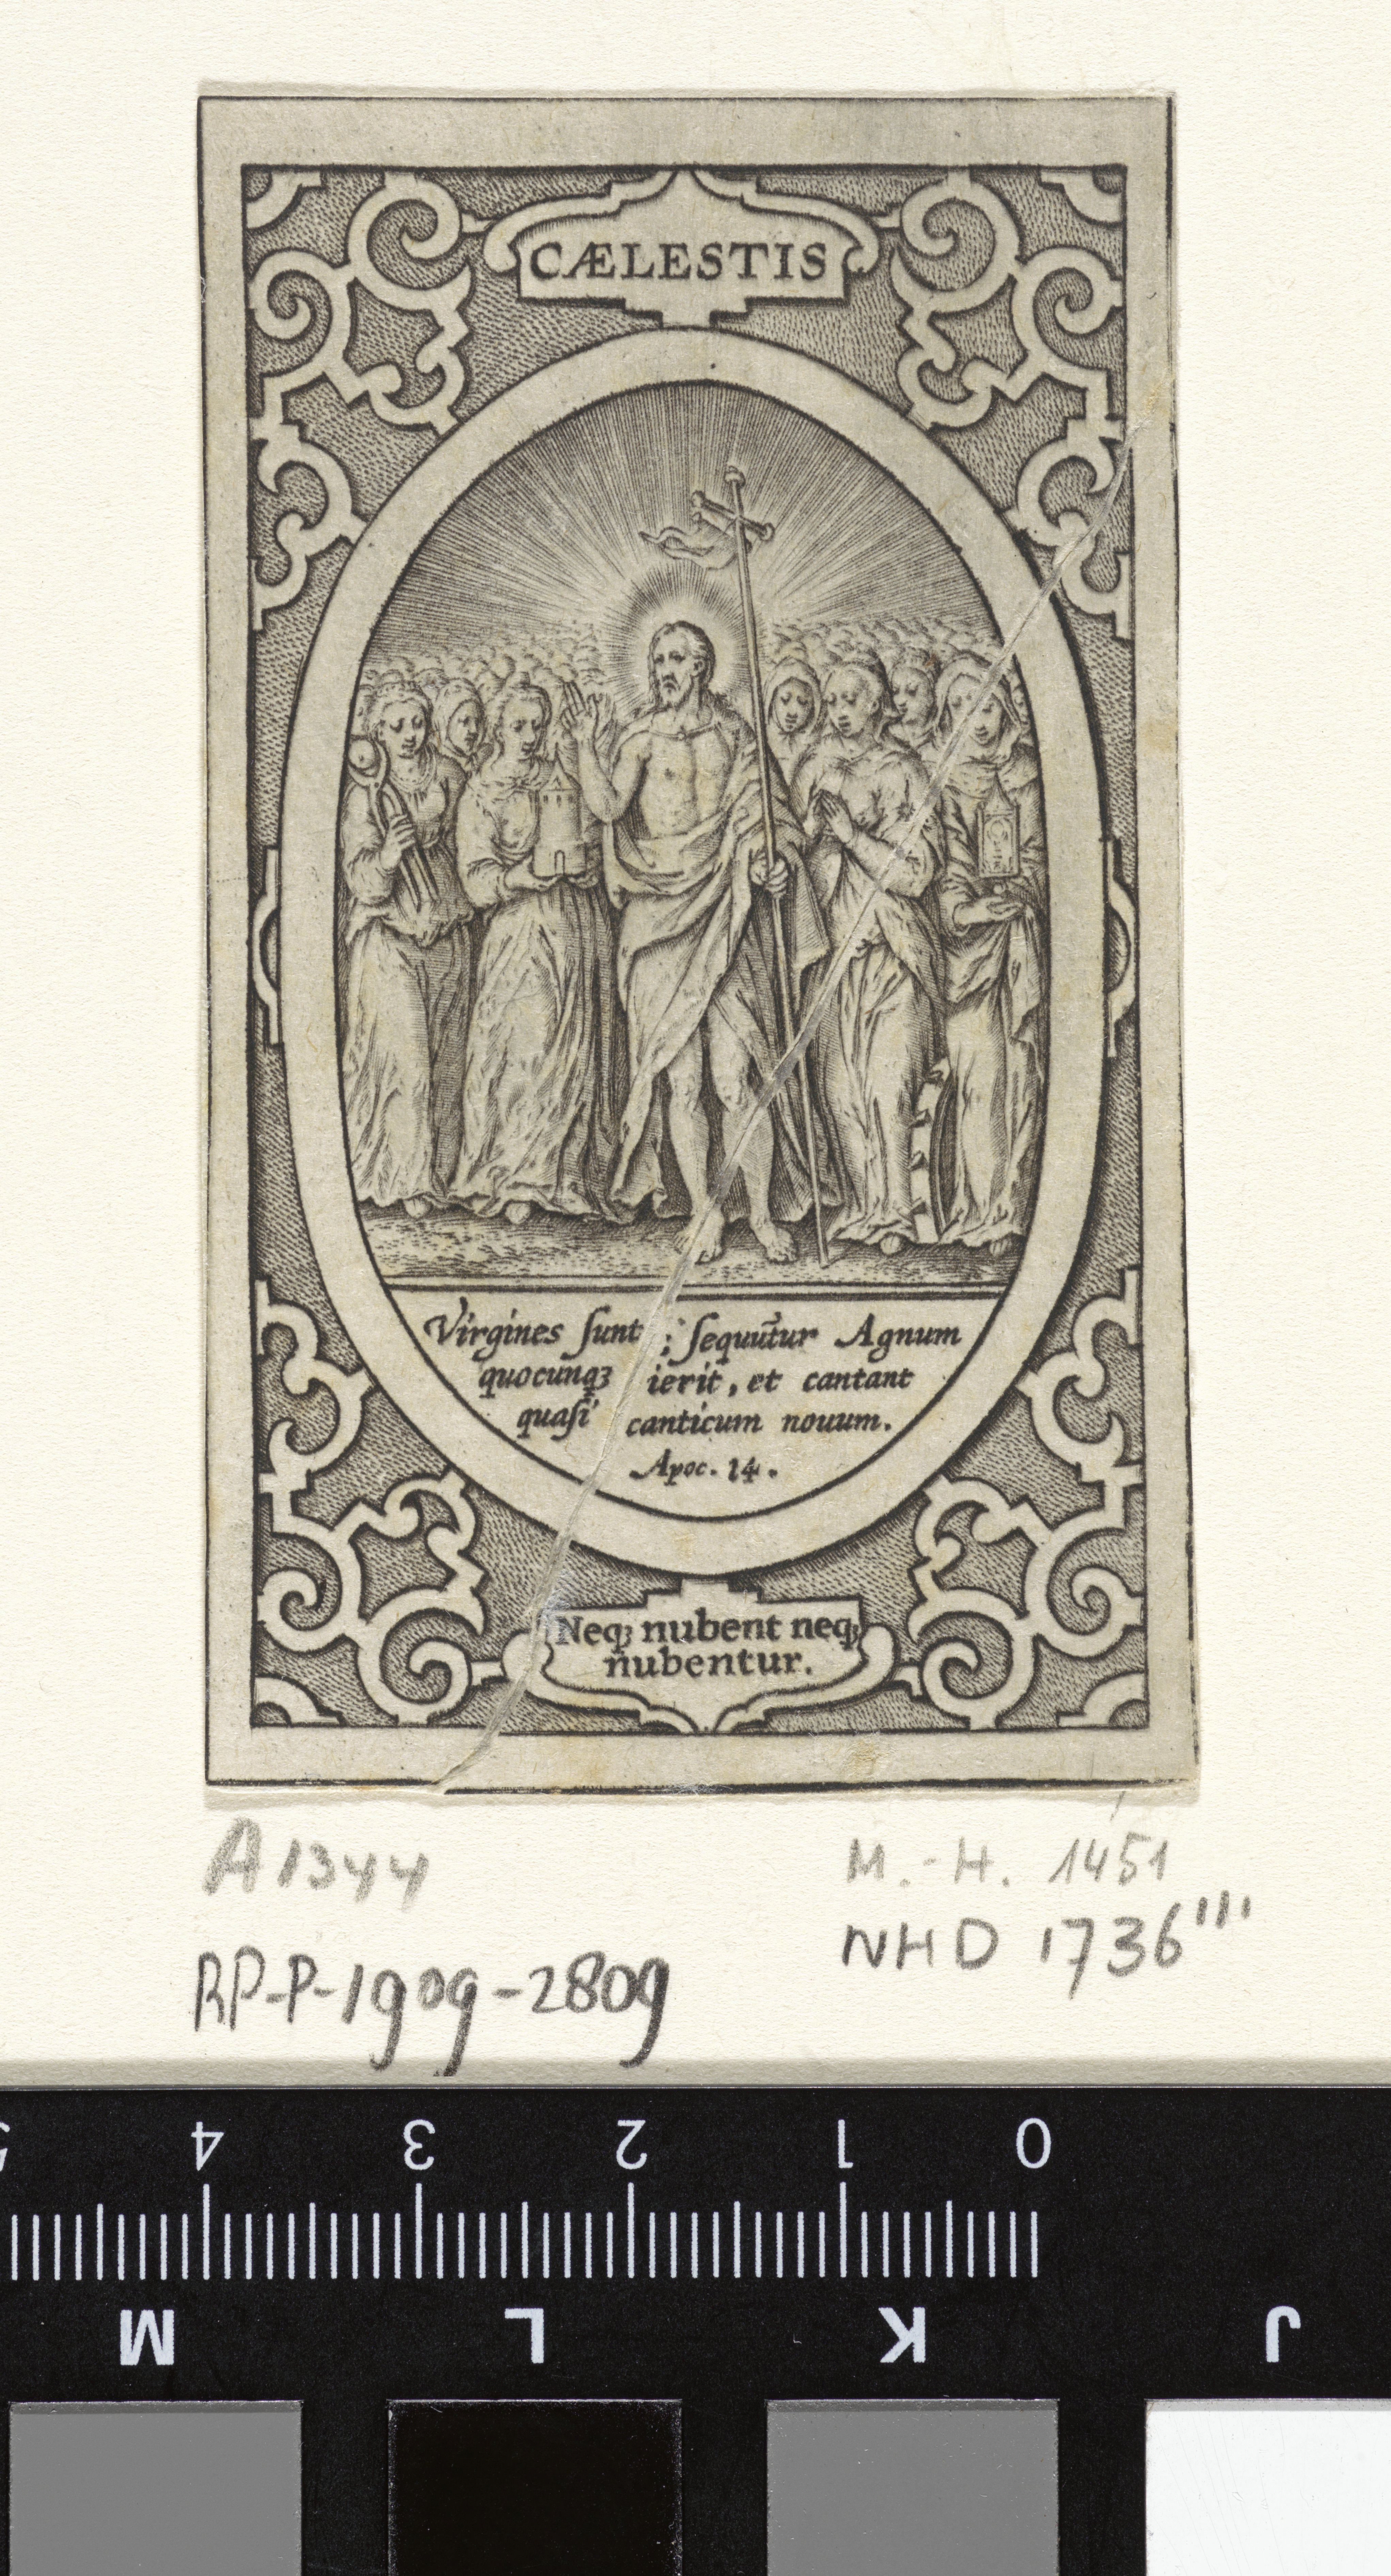 CÆLESTIS
Virgines ſunt ; ſequūtur Agnum
quocunqꝫ ierit, et cantant
quaſi canticum nouum.
Apoc. 14.
Neqꝫ nubent neqꝫ
nubentur.
A 1344
M.-H. 1451
NHD 1736'''
RP-P-1909-2809
5 4 3 2 1 0
M L K J